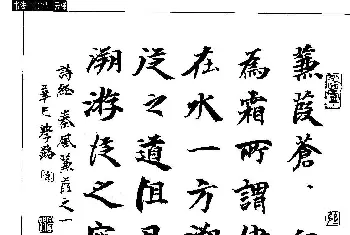 蒹葭蒼、
為霜所謂
在水一方溯
從之道阻且
溯游從之宛
詩經 秦風蒹葭之一
辛巳學路